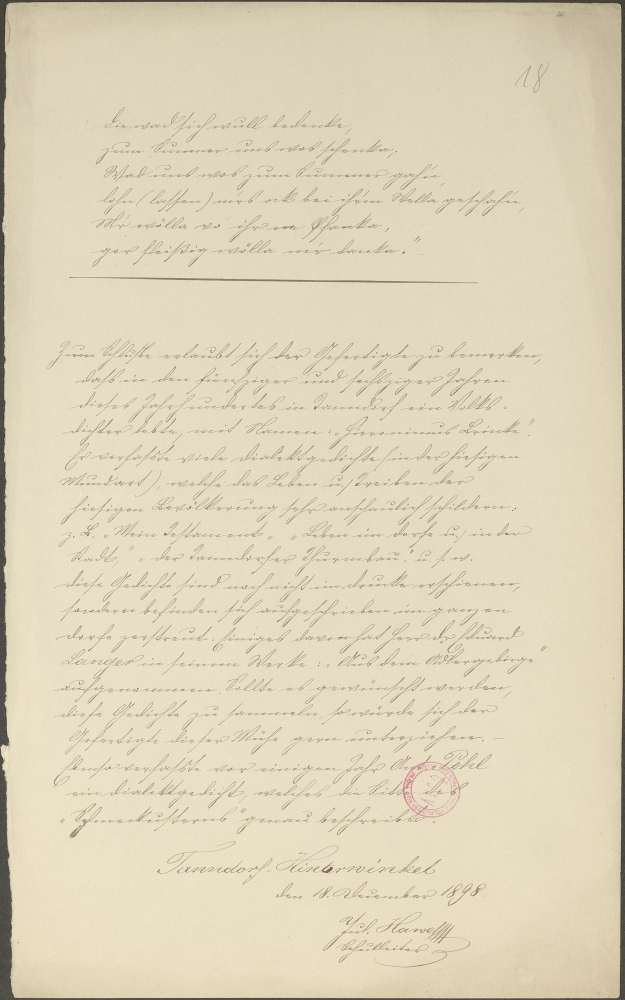 18
die wad sich wull bedenke,
zum Summer uns wos schenka,
Wad uns wos zum Summer gahn,
lohn (lassen) mir's ock bei ihr'm Wella geschahn,
Mir wölla vo ihr na
gor fleißig wölla mir danka."
Zum Schluße erlaubt sich der Gefertigte zu bemerken,
daß in den fünfziger und sechziger Jahren
dieses Jahrhundertes in Tanndorf ein Volks-
dichter lebte, mit Namen: „Hieronimus Brinke".
Er verfaßte viele Dialektgedichte (in der hiesigen
Mundart), welche das Leben u. Treiben der
hiesigen Bevölkerung sehr anschaulich schildern;
z. B. „Mein Testament", „Leben im Dorfe u. in der
Stadt", „der Tanndorfer Thurmbau" u. s. w.
Diese Gedichte sind noch nicht im Drucke erschienen,
sondern befinden sich aufgeschrieben im ganzen
Dorfe zerstreut. Einiges davon hat Herr Dr. Eduard
Langer in seinem Werke: „Aus dem Adlergebirge"
aufgenommen. Sollte es gewünscht werden,
diese Gedichte zu sammeln, so würde sich der
Gefertigte dieser Mühe gern unterziehen. –
Ebenso verfaßte vor einigen Jahr
ein Dialektgedicht, welches die Sitte des
„Schmeckusterns" genau beschreibt.
Tanndorf-Hinterwinkel
den 18. Dezember 1898.
Jul. Hawel
Schulleiter